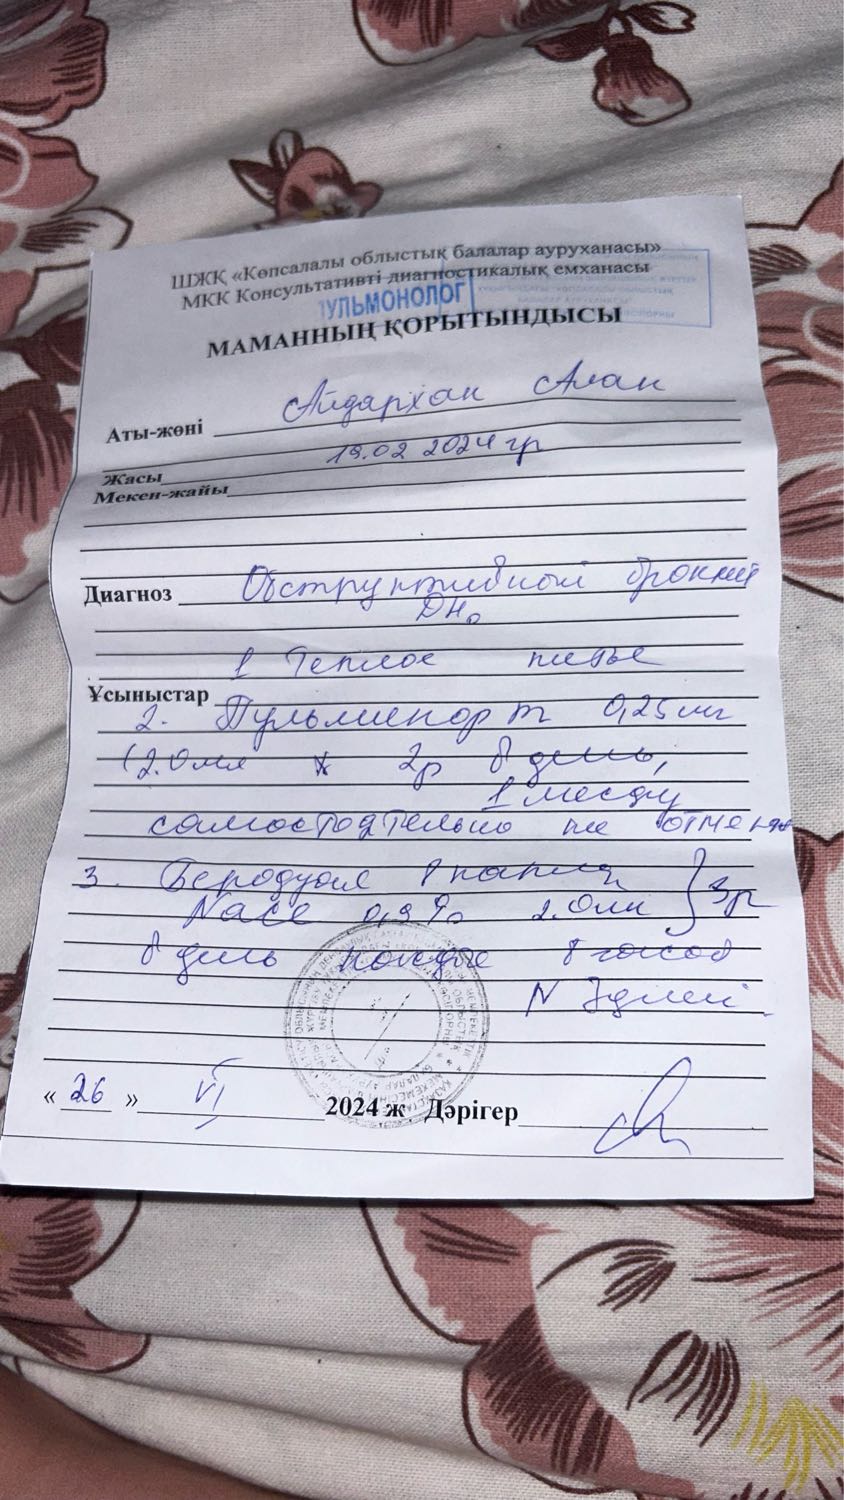 ШЖҚ «Көпсалалы облыстық балалар ауруханасы»
МКК Консультативті диагностикалық емханасы
ПУЛЬМОНОЛОГ
МАМАННЫҢ ҚОРЫТЫНДЫСЫ
Аты-жөні Айдархан Алан
Жасы 19.02 2024 гр
Мекен-жайы
Диагноз Обструктивный бронхит
ДН₀
1 Теплое питье
Ұсыныстар
2. Пульмикорт 0,25 мг
(2.0 мл х 2р в день,
1 месяц
самостоятельно не отменя
3. Беродуал 8 капли } 3р
NaCl 0,9% 2.0 мл
в день каждые 8 часов
N 7 дней
« 26 » VI 2024 ж Дәрігер